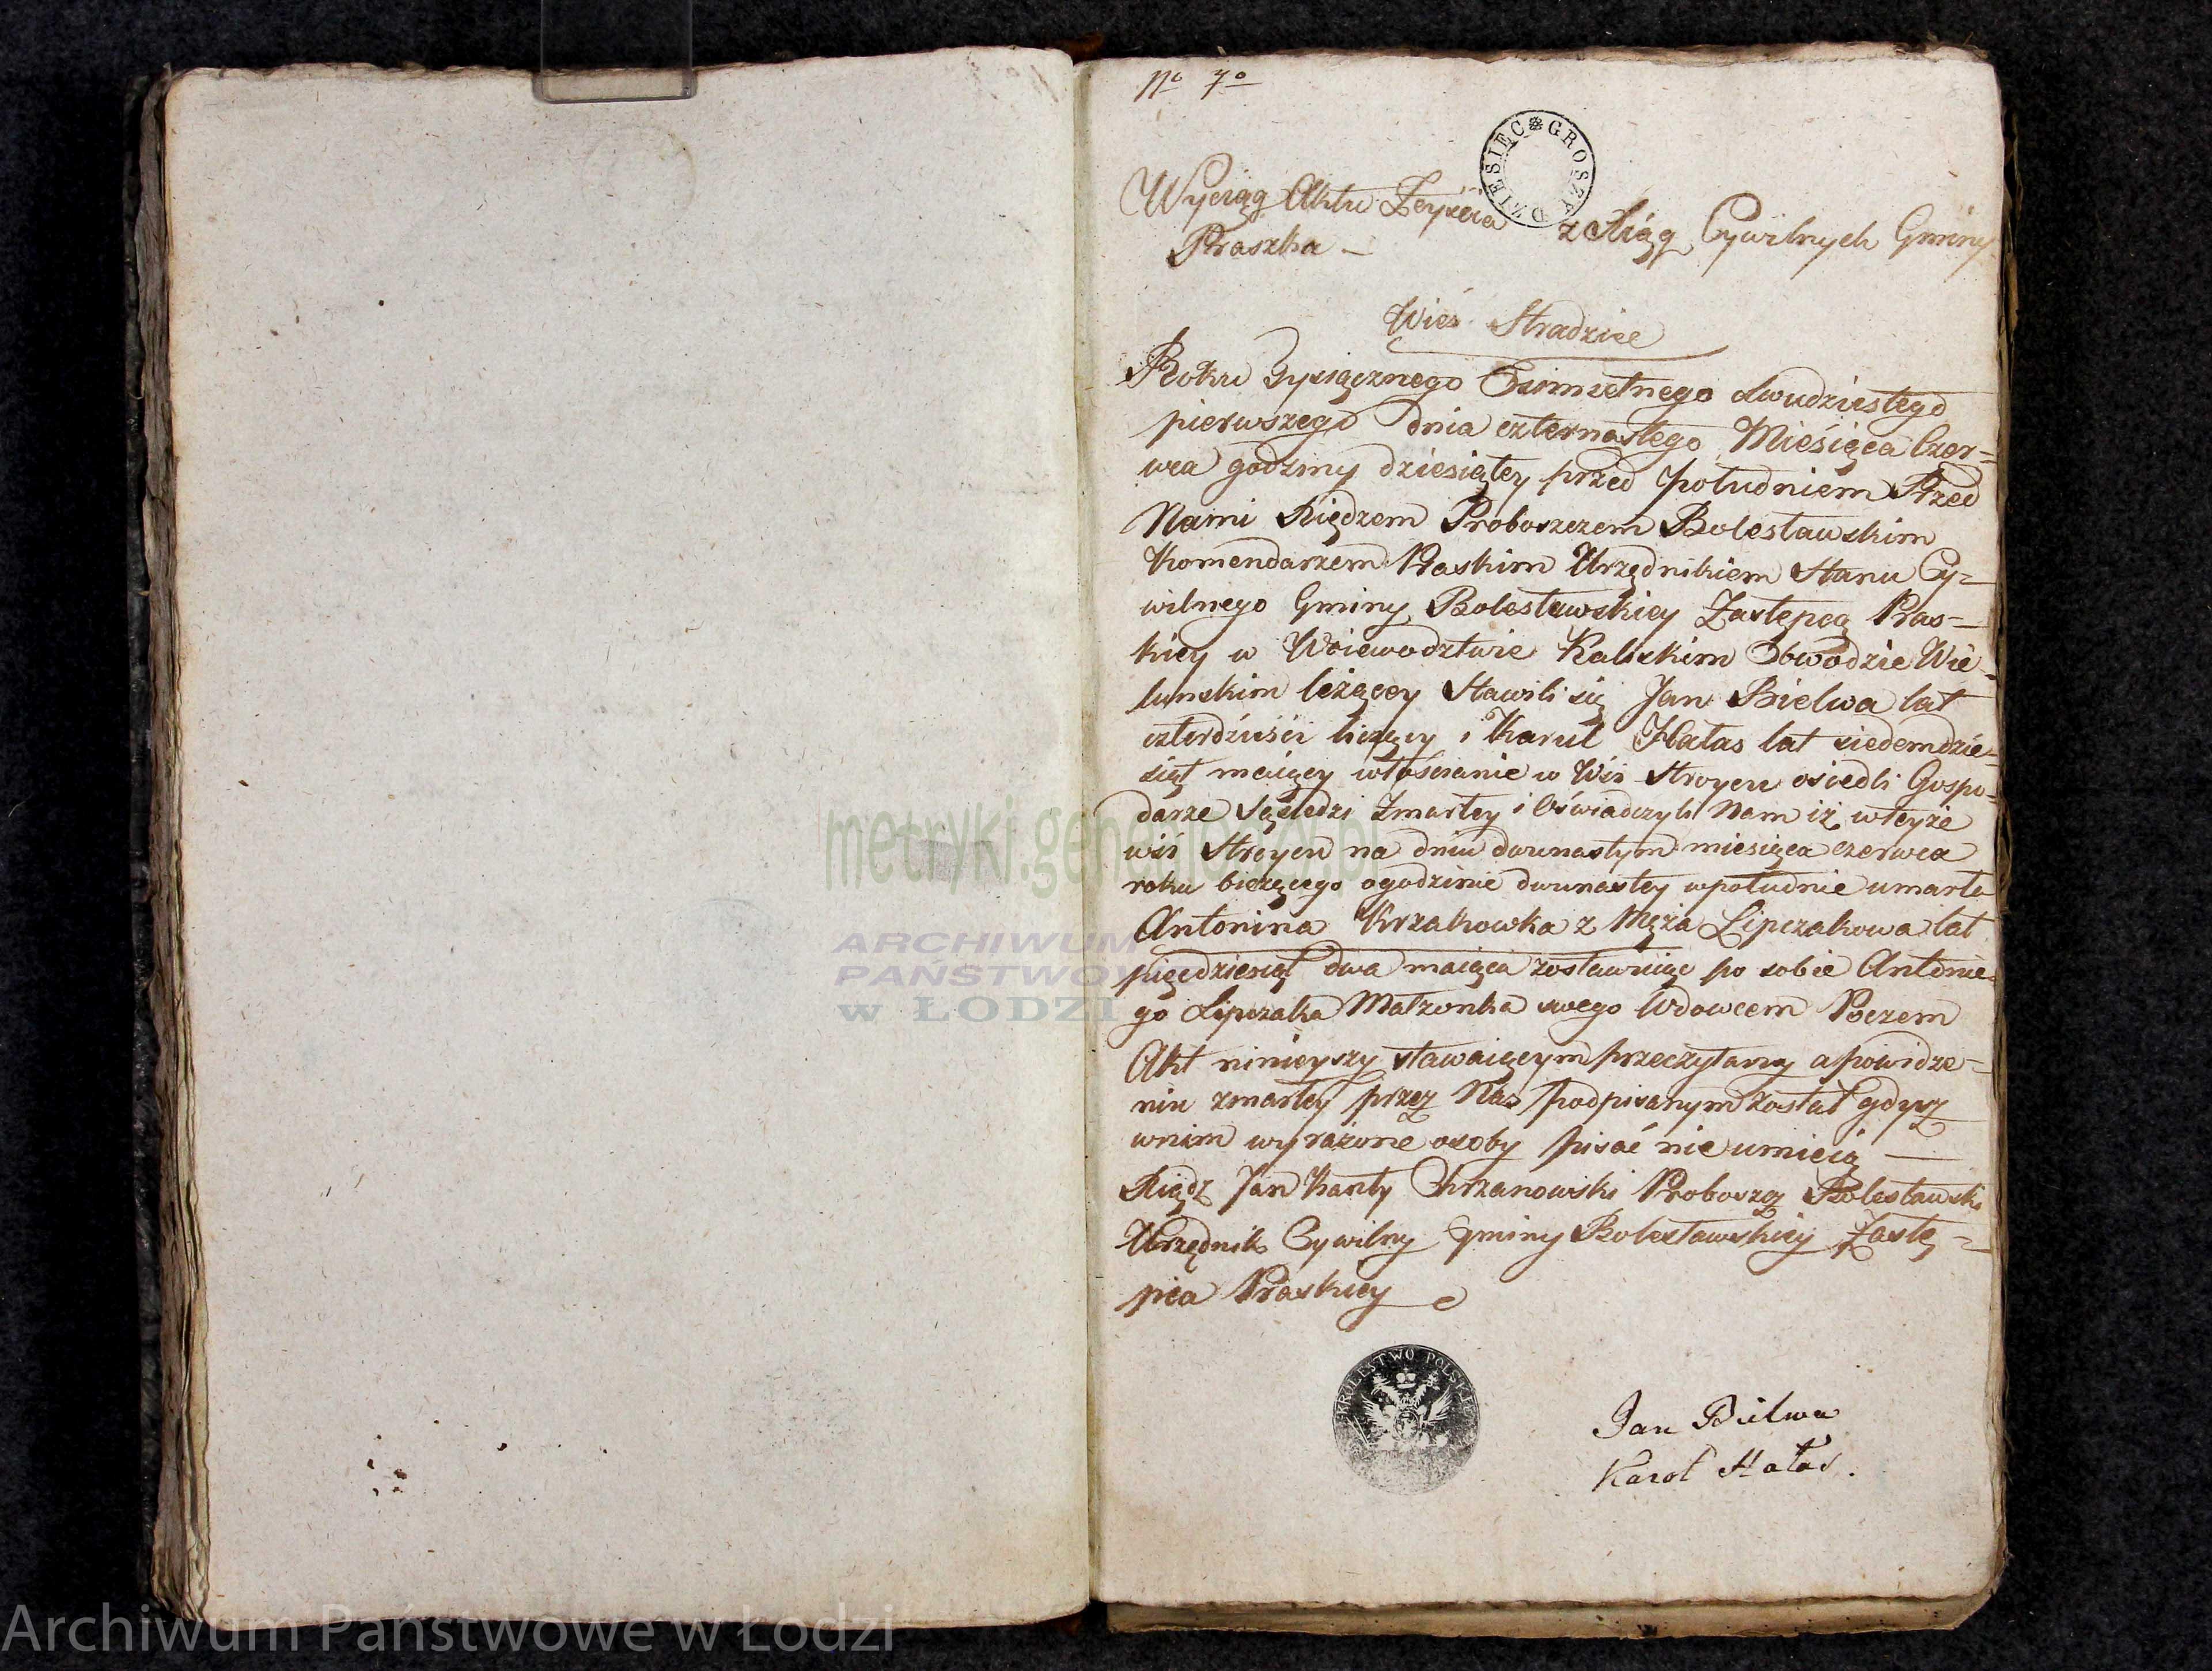 No 7o
DZIESIĘC GROSZY
Wyciąg Aktu Zeyścia z Xiąg Cywilnych Gminy
Praszka –
Wieś Stradziec
Roku Tysiącznego Osimsetnego dwudziestego
pierwszego dnia czternastego Miesiąca Czer=
wca godziny dziesiątey przed południem Przed
Nami Xiędzem Proboszczem Bolesławskim
Komendarzem Praskim Urzędnikiem Stanu Cy=
wilnego Gminy Bolesławskiey Zastępcą Pras=
kiey w Woiewodztwie Kaliskim Obwodzie Wie=
lunskim leżącey Stawili się Jan Bielwa lat
czterdzieści liczący i Karul Hałas lat siedemdzie=
siąt maiący włościanie w Wsi Stroycu osiedli Gospo=
darze Sąsiedzi Zmarłey i Oświadczyli Nam iż wteyże
wsi Stroycu na dniu dwunastym miesiąca czerwca
roku bieżącego ogodzinie dwunastey wpołudnie umarła
Antonina Krzakowka z Męża Lipczakowa lat
pięcdziesiąt dwa maiąca zostawuiąc po sobie Antonie=
go Lipczaka Małzonka swego Wdowcem Poczem
Akt ninieyszy stawaiącym przeczytany a powidze=
niu zmarłey przez Nas podpisanym został gdyz
wnim wyrażone osoby pisać nie umieią —
Xiądz Jan Kanty Chrzanowski Proboszcz Bolesławski
Urzędnik Cywilny Gminy Bolesławskiey Zastę=
pca Praskiey
KROLESTWO POLSKIE
Jan Bielwa
Karol Hałas.
metryki.genealodzy.pl
ARCHIWUM
PAŃSTWOWE
w ŁODZI
Archiwum Państwowe w Łodzi